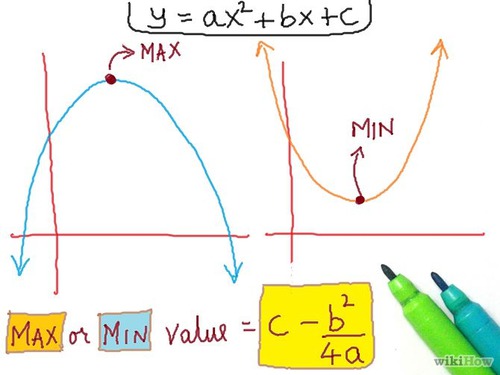 y = ax² + bx + c
MAX
MIN
MAX or MIN value = c - b²/4a
wikiHow